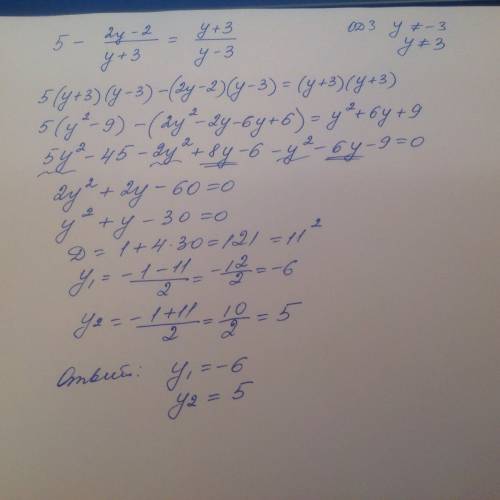 5 - (2y-2)/(y+3) = (y+3)/(y-3) ОДЗ y ≠ -3
y ≠ 3
5(y+3)(y-3)-(2y-2)(y-3)=(y+3)(y+3)
5(y²-9)-(2y²-2y-6y+6)=y²+6y+9
5y²-45-2y²+8y-6-y²-6y-9=0
2y²+2y-60=0
y²+y-30=0
D=1+4·30=121=11²
y₁=(-1-11)/2=-12/2=-6
y₂=(-1+11)/2=10/2=5
Ответ: y₁=-6
y₂=5